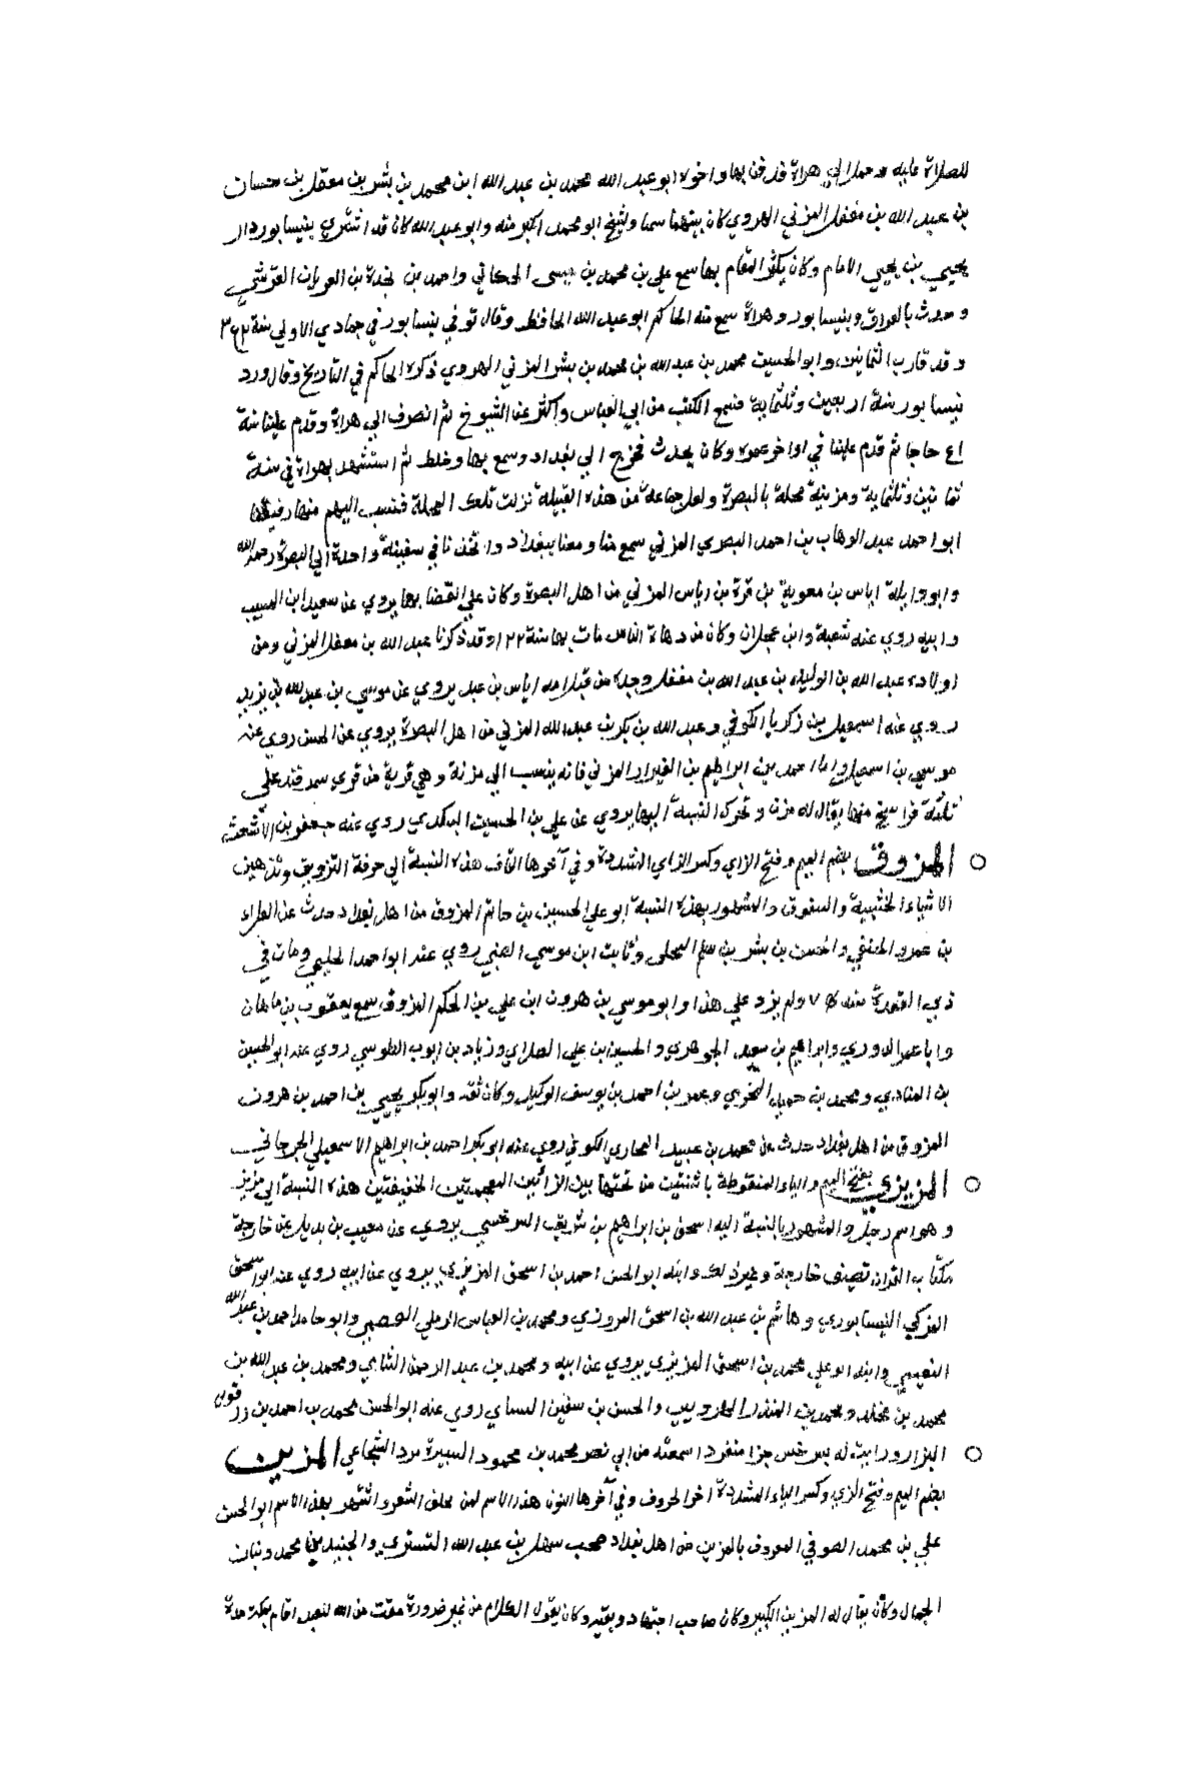 للصلاة عليه وحمل الى هراة فدفن بها واخوه ابو عبد الله محمد بن عبد الله ابن محمد بن بشر بن معقل بن حسان
بن عبد الله بن مغفل المزني الهروي كان بينهما سنا والشيخ ابو محمد اكبر منه وابو عبد الله كان قد اشترى بنيسابور دار
يحيى بن يحيى الامام وكان يكثر المقام بها سمع علي بن محمد بن عيسى الحكاني واحمد بن نجدة بن العريان القرشي
وحدث بالعراق وبنيسابور وهراة سمع منه الحاكم ابو عبد الله الحافظ وقال توفي بنيسابور في جمادي الاولي سنة
وقد قارب الثمانين وابو الحسين محمد بن عبد الله بن محمد بن بشر المزني الهروي ذكره الحاكم في التاريخ وقال ورد
نيسابور سنة اربعين وثلثماية فسمع الكتب من ابي العباس واكثر عن الشيوخ ثم انصرف الى هراة وقدم علينا سنة
حاجا ثم قدم علينا في اواخر عمره وكان يحدث فخرج الى بغداد وسمع بها وخلط ثم استشهد بهراة في سنة
ثمانين وثلثماية ومزينة محلة بالبصرة ولعل جماعة من هذه القبيلة نزلت تلك المحلة فنسب اليهم منها رفيقنا
ابو احمد عبد الوهاب بن احمد البصري المزني سمع منا ومعنا ببغداد وانحدرنا في سفينة واحدة الى البصرة رحمه الله
وابو واثلة اياس بن معوية بن قرة بن رياس المزني من اهل البصرة وكان علي القضا بها يروي عن سعيد ابن المسيب
وابيه روي عنه شعبة وابن عجلان وكان من دهاة الناس مات بها سنة ١٢٢ وقد ذكرنا عبد الله بن مغفل المزني ومن
اولاده عبد الله بن الوليد بن عبد الله بن مغفل وجده من قبل امه اياس بن عبد يروي عن موسي بن عبد الله بن يزيد
روي عنه اسمعيل بن زكريا الكوفي وعبد الله بن بكر بن عبد الله المزني من اهل البصرة يروي عن الحسن روي عنه
موسي بن اسمعيل واما احمد بن ابراهيم بن العيزار المزني فانه ينسب الى مزنة وهي قرية من قرى سمرقند على
ثلثة فراسخ منها يقال له مزن وتحرك النسبة اليها يروي عن علي بن الحسين البيكندي روي عنه جعفر بن الاشعث
المزوق بضم الميم وفتح الزاي وكسر الواو المشددة وفي آخرها القاف هذه النسبة الى حرفة التزويق وتذهيب
الاشياء الخشبية والسقوف والمشهور بهذه النسبة ابو علي الحسين بن حاتم المزوق من اهل بغداد حدث عن العلاء
بن عمرو الحنفي والحسن بن بشر بن سلم البجلي وثابت ابن موسي الضبي روي عنه ابو احمد الحليمي ومات في
ذي القعدة سنة ولم يزد علي هذا وابو موسي بن هرون ابن علي بن الحكم المزوق سمع يعقوب بن ماهان
وابا عمر الدوري وابراهيم بن سعيد الجوهري والحسين بن علي الصدائي وزياد بن ايوب الطوسي روي عنه ابو الحسين
بن المنادي ومحمد بن حميد المخرمي وعمر بن احمد بن يوسف الوكيل وكان ثقة وابو بكر يحيى بن احمد بن هرون
المزوق من اهل بغداد حدث عن محمد بن عبيد المحاربي الكوفي روي عنه ابو بكر احمد بن ابراهيم الاسمعيلي الجرجاني
المزيزي بفتح الميم والياء المنقوطة باثنتين من تحتها بين الزائين المعجمتين الخفيفتين هذه النسبة الى مزيز
وهو اسم رجل والمشهور بالنسبة اليه اسحق بن ابراهيم بن شريف السرخسي يروي عن مغيث بن بديل عن خارجة
كتاب القران تصنيف خارجة وغير ذلك وابنه ابو الحسن احمد بن اسحق المزيزي يروي عن ابيه روي عنه ابو اسحق
المزكي النيسابوري وهاشم بن عبد الله بن اسحق المروزي ومحمد بن العباس الرملي العصمي وابو حامد احمد بن عبد الله
النعيمي وابنه ابو علي محمد بن اسحق المزيزي يروي عن ابيه ومحمد بن عبد الرحمن الشامي ومحمد بن عبد الله بن
محمد بن مخلد ومحمد بن المنذر الهروي والحسن بن سفين النساي روي عنه ابو الحسن محمد بن احمد بن رزقويه
البزاز ورايت له بسرخس جزا منفردا سمعته من ابي نصر محمد بن محمود السيرة مرد الشجاعي المزين
بضم الميم وفتح الزاي وكسر الياء المشددة آخر الحروف وفي آخرها النون هذا الاسم لمن يحلق الشعر واشتهر بهذا الاسم ابو الحسن
علي بن محمد الصوفي المعروف بالمزين من اهل بغداد صحب سهل بن عبد الله التستري والجنيد بن محمد وبنان
الجمال وكان يقال له المزين الكبير وكان صاحب اجتهاد وتعبد وكان يقول الكلام من غير ضرورة مقت من الله للعبد اقام بمكة مدة